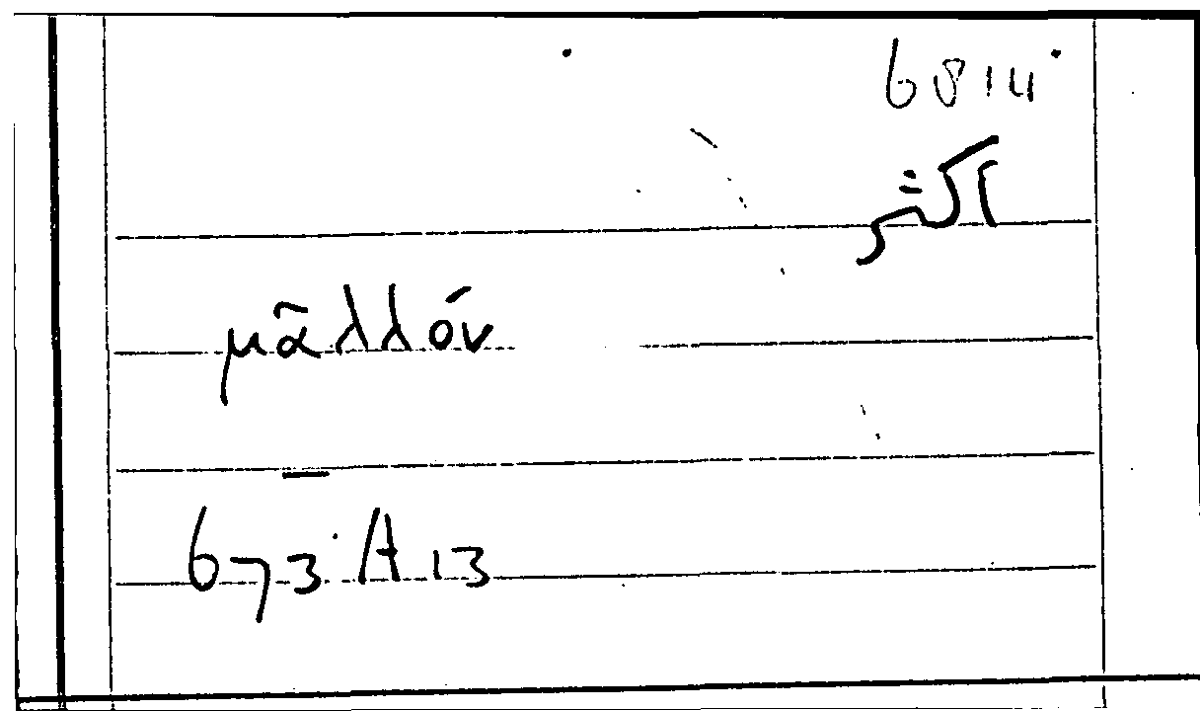 68 14
أكثر
μᾶλλόν
673 A 13